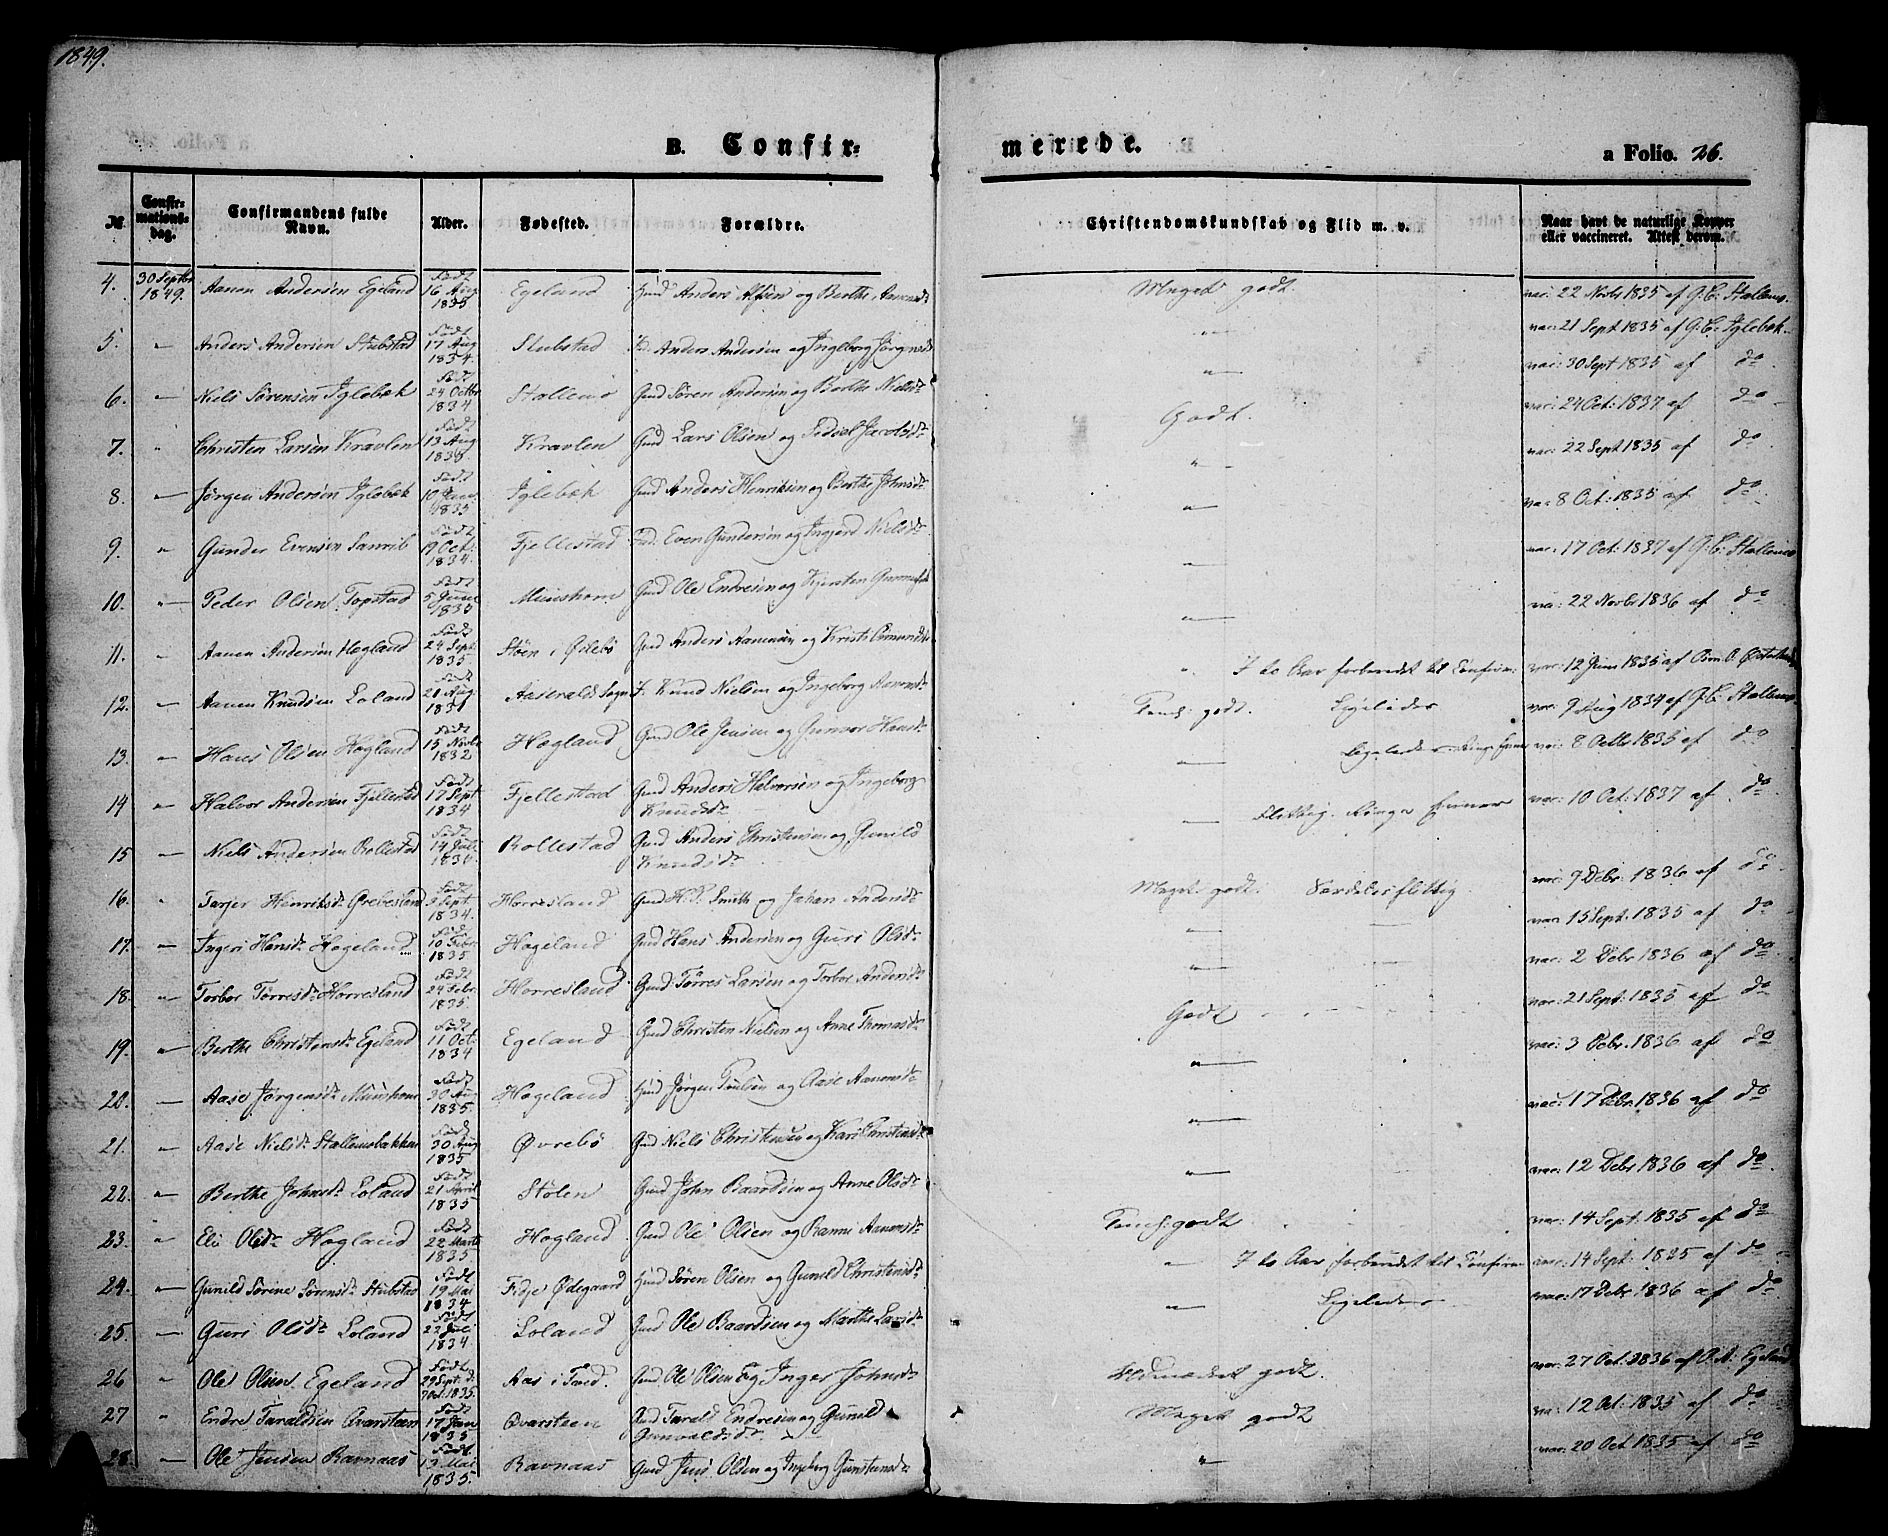 1849.
B. Confir= merede. a Folio. 26.
№ Confir=mations=dag. Confirmandens fulde Navn. Alder. Fødested. Forældre. Christendomskundskab og Flid m. v. Naar havt de naturlige Kopper eller vaccineret. Attest derom.
4. 30 Septbr 1849. Aanen Andersen Egeland Født 16 Aug 1835 Egeland Gmd Anders Alfsen og Berthe Aanensd. Meget godt. vac: 22 Novbr 1835 af G. C: Stallemo.
5. " Anders Andersen Stubstad Født 17 Aug 1834. Stubstad Anders Andersen og Ingeborg Jørgensd " vac: 21 Sept 1835 af G: C: Iglebæk.
6. " Niels Sørensen Iglebæk Født 24 Octbr 1834 Stallemo Gmd Søren Andersen og Berthe Nielsd. " vac: 30 Sept 1835 af do
7. " Christen Larsen Kravlen Født 13 Aug 1835 Kravlen Gmd Lars Olsen og Sidsel Jacobsd. Godt. vac: 24 Oct: 1837 af do
8. " Jørgen Andersen Iglebæk Født 10 Jan 1835 Iglebæk Gmd Anders Henriksen og Berthe Johnsd. " vac: 22 Sept 1835 af do
9. " Gunder Evensen Født 19 Oct: 1834. Fjellestad Even Gundersen og Ingjerd Nielsd. " vac: 8 Oct: 1835 af do
10. " Peder Olsen Topstad Født 5 Juni 1835 Munshom Gmd Ole Endresen og Kjersten " vac: 17 Oct: 1837 af G: C: Stallemo
11. " Aanen Andersen Hægland Født 24 Sept: 1835 Støen i Øvlebø Gmd Anders Aanensen og Kirsti Omundsd. " vac: 22 Novbr 1836 af do
12. " Aanen Knudsen Loland Født 21 Aug: 1831 Aaseralds Sogn Knud Nielsen og Ingeborg Aanensd. " I to Aar forberedt til Confirm: vac: 12 Juni 1835 af
13. " Hans Olsen Hægland Født 15 Novbr 1832 Hægland Gmd Ole Jensen og Gunvor Hansd. Temel: godt. Ligeledes vac: 9 Aug 1834 af G. C: Stallemo.
14 " Halvor Andersen Fjellestad Født 17 Sept 1834 Fjellestad Gmd Anders Halvorsen og Ingeborg Knudsd. " Ligeledes. Ringe Evner vac: 8 Octbr 1835 af do
15 " Niels Andersen Rollestad Født 14 Juli 1834. Rollestad Gmd Anders Christensen og Gunild Knudsd. " Flittig. Ringe Evner vac: 10 Oct: 1837 af do
16. " Tarjer Henriksd. Ørebesland Født 3 Sept 1834. Horresland Gmd H. P. Smith og Johan Andersd. Meget godt. Særdeles flittig vac: 9 Debr. 1836 af do
17. " Ingeri Hansd. Hægeland Født 10 Febr 1835 Hægeland Gmd Hans Andersen og Guri Olsd. " vac: 15 Sept. 1835 af do
18. " Torbor Tørresd. Horresland Født 24 Febr 1835 Horresland Gmd Tørres Larsen og Torbor Andersd. " vac: 2 Debr 1836 af do
19. " Berthe Christensd. Egeland Født 11 Oct: 1834 Egeland Gmd Christen Nielsen og Anne Thomasd. Godt vac: 21 Sept: 1835 af do
20. " Aase Jørgensd. Munshom Født 30 Aug 1835. Hægeland Gmd Jørgen Poulsen og Aase Aanensd. " vac: 3 Debr. 1836 af do
21. " Aase Nielsd. Stallemsbakken Født 30 Aug 1835 Øvrebø Gmd Niels Christensen og Kari Christensd. " vac: 17 Debr 1836 af do
22. " Berthe Johnsd. Loland Født 21 April 1835 Stølen Gmd John Baardsen og Anne Olsd. " vac: 12 Debr 1836 af do
23. " Eli Olsd. Hægland Født 22 Marts 1835 Hægland Gmd Ole Olsen og Ranni Aanensd. Temel: godt vac: 14 Sept: 1835 af do
24. " Gunild Sørine Sørensd. Stubstad Født 19 Mai 1834 Fidje Ødegaard Gmd Søren Olsen og Gunild Christensd. " I to Aar forberedt til Confirm vac: 14 Sept: 1835 af do
25. " Guri Olsd. Loland Født 23 Juli 1834. Loland Gmd Ole Baardsen og Marthe Larsd. " Ligeledes vac: 17 Debr 1836 af do
26 " Ole Olsen Egeland Født 29 Sept: d. 7 Oct. 1835. Aas i Gmd. Ole Olsen og Inger Johnsd. Udmærket godt. vac: 27 Oct: 1836 af O. A: Egeland
27 " Endre Taraldsen Qvarsteen Født 17 Jan 1835 Qvarsteen Gmd Tarald Endresen og Gunild Gunvaldsd. Meget godt vac: 12 Oct: 1835 af do
28 " Ole Jensen Ravnaas Født 13 Mai 1835. Ravnaas Gmd Jens Olsen og Ingeborg Gunstensd. " vac: 20 Oct 1835 af do